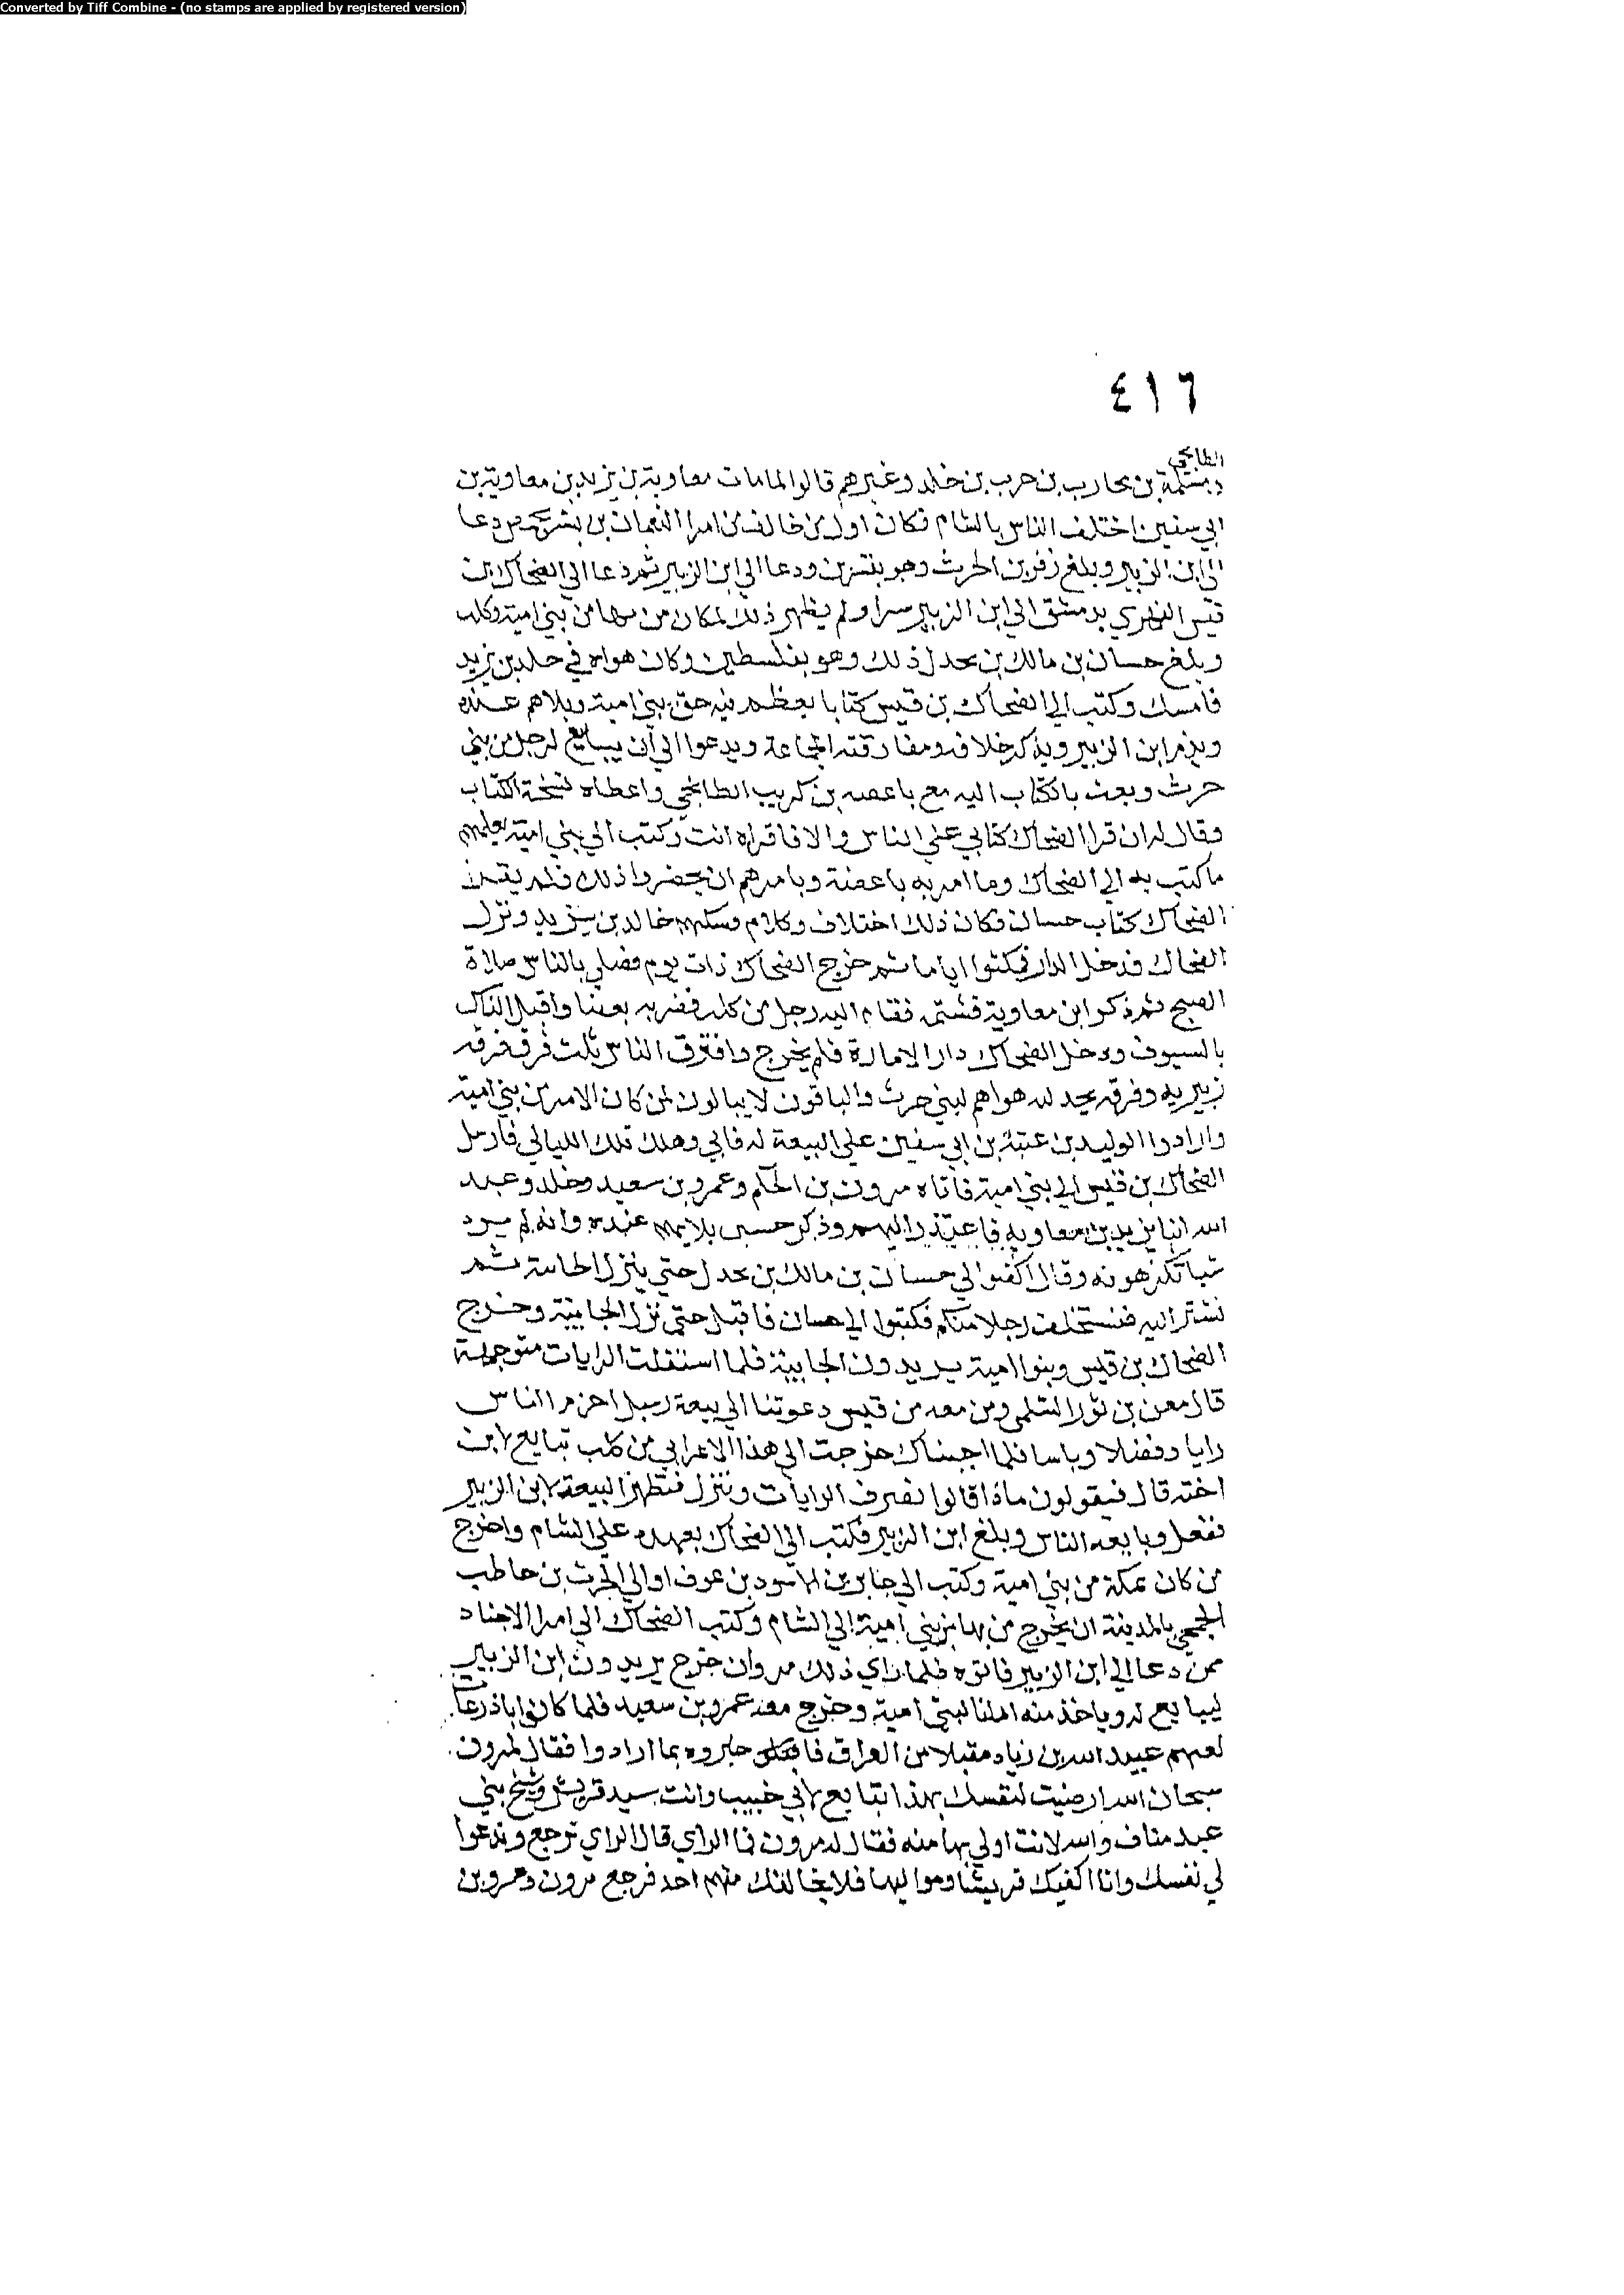 Converted by Tiff Combine - (no stamps are applied by registered version)
٤١٦
الطابخي
ومسلمة بن محارب بن حرب بن خلد وغيرهم قالوا لما مات معاوية بن يزيد بن معاوية بن
ابي سفين اختلف الناس بالشام فكان اول من خالف من امرا النعمان بن بشير بحمص دعا
الى ابن الزبير وبلغ زفر بن الحرث وهو بقنسرين ودعا الي ابن الزبير ثم دعا الي الضحاك بن
قيس الفهري بدمشق الي ابن الزبير سرا ولم يظهر ذلك لمكان من بها من بني امية وكلب
وبلغ حسان بن مالك بن بحدل ذلك وهو بفلسطين وكان هواه في خلد بن يزيد
فامسك وكتب الي الضحاك بن قيس كتابا يعظم فيه حق بني امية وبلاهم عنده
ويذم ابن الزبير ويذكر خلافه ومفارقته الجماعة ويدعوا الي ان يبايع لرجل من بني
حرب وبعث بالكتاب اليه مع باعصه بن كريب الطابخي واعطاه نسخة الكتاب
وقال له ان قرا الضحاك كتابي علي الناس والا فاقراه انت وكتب الي بني امية يعلمهم
ما كتب به الي الضحاك وما امر به باعضة ويامرهم ان يحضروا ذلك فلم يقرا
الضحاك كتاب حسان فكان ذلك اختلاف وكلام فسكنهم خالد بن يزيد ونزل
الضحاك فدخل الدار فمكثوا اياما ثم خرج الضحاك ذات يوم فصلي بالناس صلاة
الصبح ثم ذكر ابن معاوية فشتمه فقام اليه رجل من كلب فضربه بعصا واقبل الناس
بالسيوف ودخل الضحاك دار الامارة فلم يخرج وافترق الناس ثلث فرق فرقه
زبيريه وفرقه بحدليه هواهم لبني حرب والباقون لا يبالون لمن كان الامر من بني امية
وارادوا الوليد بن عتبة بن ابي سفين علي البيعة له فابي وهلك تلك الليالي فارسل
الضحاك بن قيس الي بني امية فاتاه مرون بن الحكم وعمرو بن سعيد وخلد وعبد
الله ابنا يزيد بن معاويه فاعتذر اليهم وذكر حسن بلايهم عنده وانه لم يرد
شيا تكرهونه وقال اكتبوا الي حسان بن مالك بن بحدل حتي ينزل الجابية ثم
نسير اليه فنستخلف رجلا منكم فكتبوا الي حسان فاقبل حتي نزل الجابية وخرج
الضحاك بن قيس وبنوا امية يريدون الجابية فلما استقلت الرايات متوجهة
قال معن بن ثور السلمي ومن معه من قيس دعوتنا الي بيعة رجل احزم الناس
رايا وفضلا وباسا فلما اجبناك خرجت الي هذا الاعرابي من كلب تبايع لابن
اخته قال فيقولون ماذا قالوا نصرف الرايات وننزل فنظهر البيعة لابن الزبير
ففعل وبايعه الناس وبلغ ابن الزبير فكتب الي الضحاك بعهده علي الشام واخرج
من كان بمكة من بني امية وكتب الي جابر بن الاسود بن عوف او الي الحرث بن حاطب
الجمحي بالمدينة ان يخرج من بها من بني امية الي الشام وكتب الضحاك الي امرا الاجناد
ممن دعا الي ابن الزبير فاتوه فلما راي ذلك مروان خرج يريدون ابن الزبير
ليبايع له وياخذ منه امانا لبني امية وخرج معه عمرو بن سعيد فلما كانوا باذرعات
لقيهم عبيد الله بن زياد مقبلا من العراق فاخبروه بما ارادوا فقال لمرون
سبحان الله ارضيت لنفسك بهذا تبايع لابي خبيب وانت سيد قريش وشيخ بني
عبد مناف والله لانت اولي بها منه فقال له مرون فما الراي قال الراي ترجع وتدعوا
لي نفسك وانا اكفيك قريشا ومواليها فلا يخالفك منهم احد فرجع مرون وعمرو بن